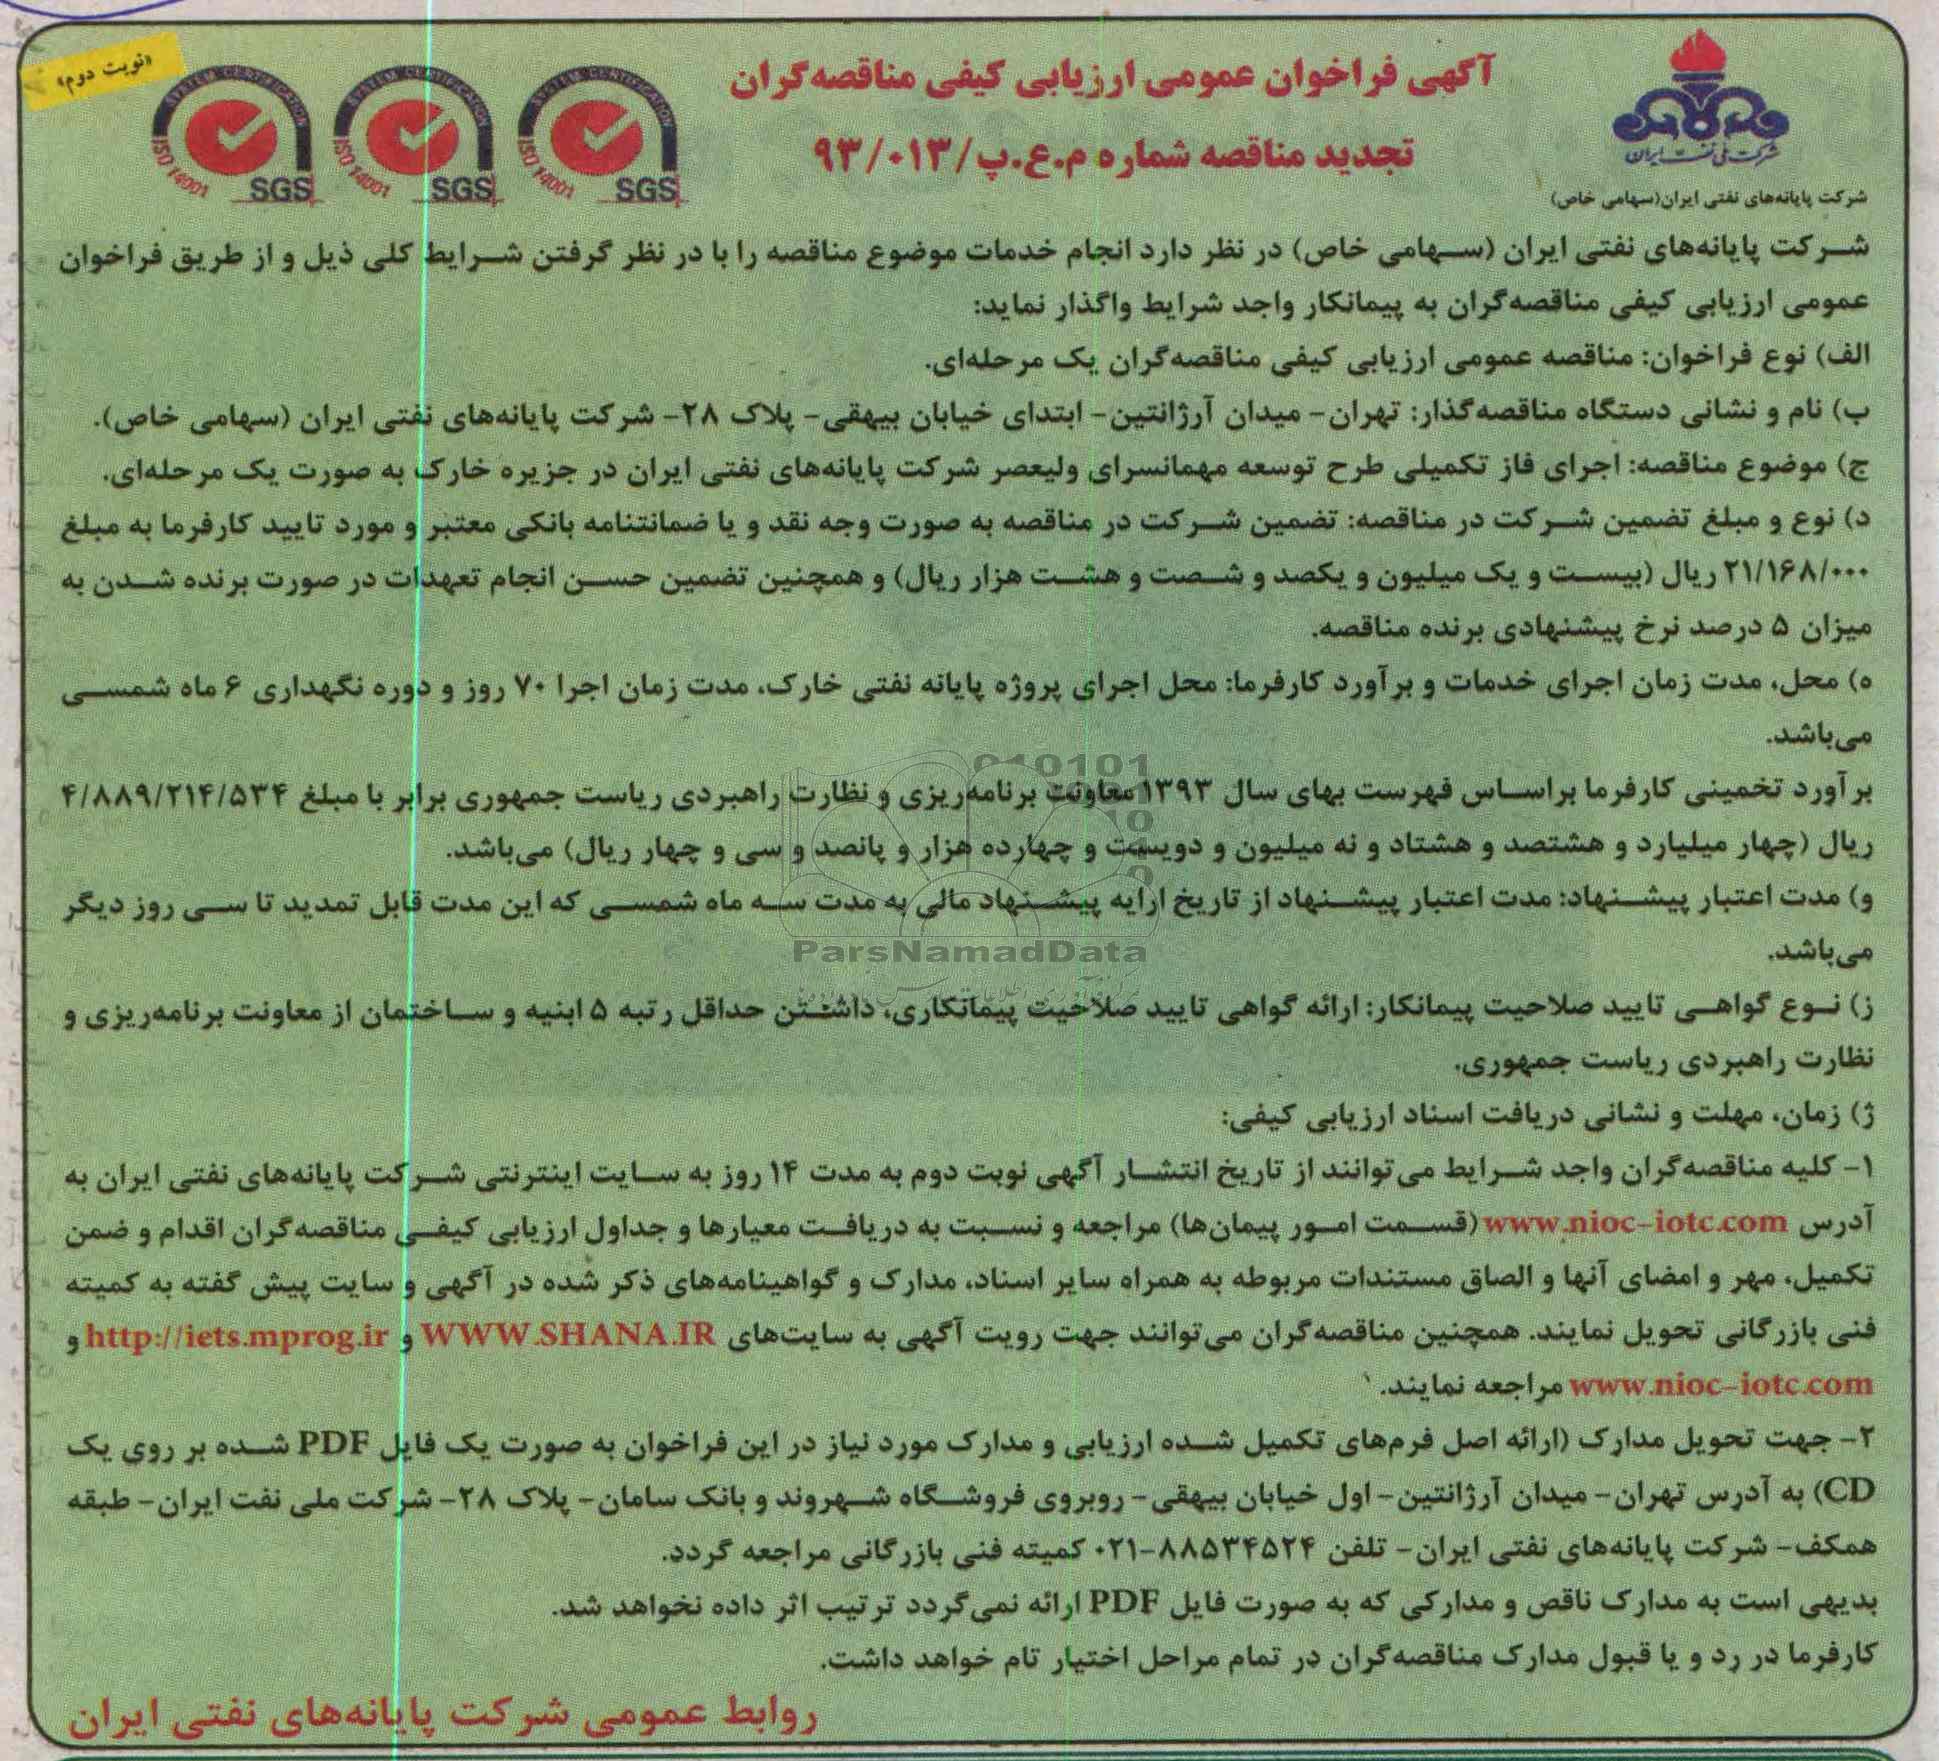 «نوبت دوم»
SYSTEM CERTIFICATION
ISO 14001
SGS
SYSTEM CERTIFICATION
ISO 14001
SGS
SYSTEM CERTIFICATION
ISO 14001
SGS
شرکت ملی نفت ایران
شرکت پایانه‌های نفتی ایران(سهامی خاص)
آگهی فراخوان عمومی ارزیابی کیفی مناقصه‌گران
تجدید مناقصه شماره م.ع.پ/۹۳/۰۱۳
شرکت پایانه‌های نفتی ایران (سهامی خاص) در نظر دارد انجام خدمات موضوع مناقصه را با در نظر گرفتن شرایط کلی ذیل و از طریق فراخوان
عمومی ارزیابی کیفی مناقصه‌گران به پیمانکار واجد شرایط واگذار نماید:
الف) نوع فراخوان: مناقصه عمومی ارزیابی کیفی مناقصه‌گران یک مرحله‌ای.
ب) نام و نشانی دستگاه مناقصه‌گذار: تهران- میدان آرژانتین- ابتدای خیابان بیهقی- پلاک ۲۸- شرکت پایانه‌های نفتی ایران (سهامی خاص).
ج) موضوع مناقصه: اجرای فاز تکمیلی طرح توسعه مهمانسرای ولیعصر شرکت پایانه‌های نفتی ایران در جزیره خارک به صورت یک مرحله‌ای.
د) نوع و مبلغ تضمین شرکت در مناقصه: تضمین شرکت در مناقصه به صورت وجه نقد و یا ضمانتنامه بانکی معتبر و مورد تایید کارفرما به مبلغ
۲۱/۱۶۸/۰۰۰ ریال (بیست و یک میلیون و یکصد و شصت و هشت هزار ریال) و همچنین تضمین حسن انجام تعهدات در صورت برنده شدن به
میزان ۵ درصد نرخ پیشنهادی برنده مناقصه.
ه) محل، مدت زمان اجرای خدمات و برآورد کارفرما: محل اجرای پروژه پایانه نفتی خارک، مدت زمان اجرا ۷۰ روز و دوره نگهداری ۶ ماه شمسی
می‌باشد.
برآورد تخمینی کارفرما براساس فهرست بهای سال ۱۳۹۳ معاونت برنامه‌ریزی و نظارت راهبردی ریاست جمهوری برابر با مبلغ ۴/۸۸۹/۲۱۴/۵۳۴
ریال (چهار میلیارد و هشتصد و هشتاد و نه میلیون و دویست و چهارده هزار و پانصد و سی و چهار ریال) می‌باشد.
و) مدت اعتبار پیشنهاد: مدت اعتبار پیشنهاد از تاریخ ارایه پیشنهاد مالی به مدت سه ماه شمسی که این مدت قابل تمدید تا سی روز دیگر
می‌باشد.
ParsNamadData
ز) نوع گواهی تایید صلاحیت پیمانکار: ارائه گواهی تایید صلاحیت پیمانکاری، داشتن حداقل رتبه ۵ ابنیه و ساختمان از معاونت برنامه‌ریزی و
نظارت راهبردی ریاست جمهوری.
ژ) زمان، مهلت و نشانی دریافت اسناد ارزیابی کیفی:
۱- کلیه مناقصه‌گران واجد شرایط می‌توانند از تاریخ انتشار آگهی نوبت دوم به مدت ۱۴ روز به سایت اینترنتی شرکت پایانه‌های نفتی ایران به
آدرس www.nioc-iotc.com (قسمت امور پیمان‌ها) مراجعه و نسبت به دریافت معیارها و جداول ارزیابی کیفی مناقصه‌گران اقدام و ضمن
تکمیل، مهر و امضای آنها و الصاق مستندات مربوطه به همراه سایر اسناد، مدارک و گواهینامه‌های ذکر شده در آگهی و سایت پیش گفته به کمیته
فنی بازرگانی تحویل نمایند. همچنین مناقصه‌گران می‌توانند جهت رویت آگهی به سایت‌های WWW.SHANA.IR و http://iets.mprog.ir و
www.nioc-iotc.com مراجعه نمایند.
۲- جهت تحویل مدارک (ارائه اصل فرم‌های تکمیل شده ارزیابی و مدارک مورد نیاز در این فراخوان به صورت یک فایل PDF شده بر روی یک
CD) به آدرس تهران- میدان آرژانتین- اول خیابان بیهقی- روبروی فروشگاه شهروند و بانک سامان- پلاک ۲۸- شرکت ملی نفت ایران- طبقه
همکف- شرکت پایانه‌های نفتی ایران- تلفن ۸۸۵۳۴۵۲۴-۰۲۱ کمیته فنی بازرگانی مراجعه گردد.
بدیهی است به مدارک ناقص و مدارکی که به صورت فایل PDF ارائه نمی‌گردد ترتیب اثر داده نخواهد شد.
کارفرما در رد و یا قبول مدارک مناقصه‌گران در تمام مراحل اختیار تام خواهد داشت.
روابط عمومی شرکت پایانه‌های نفتی ایران